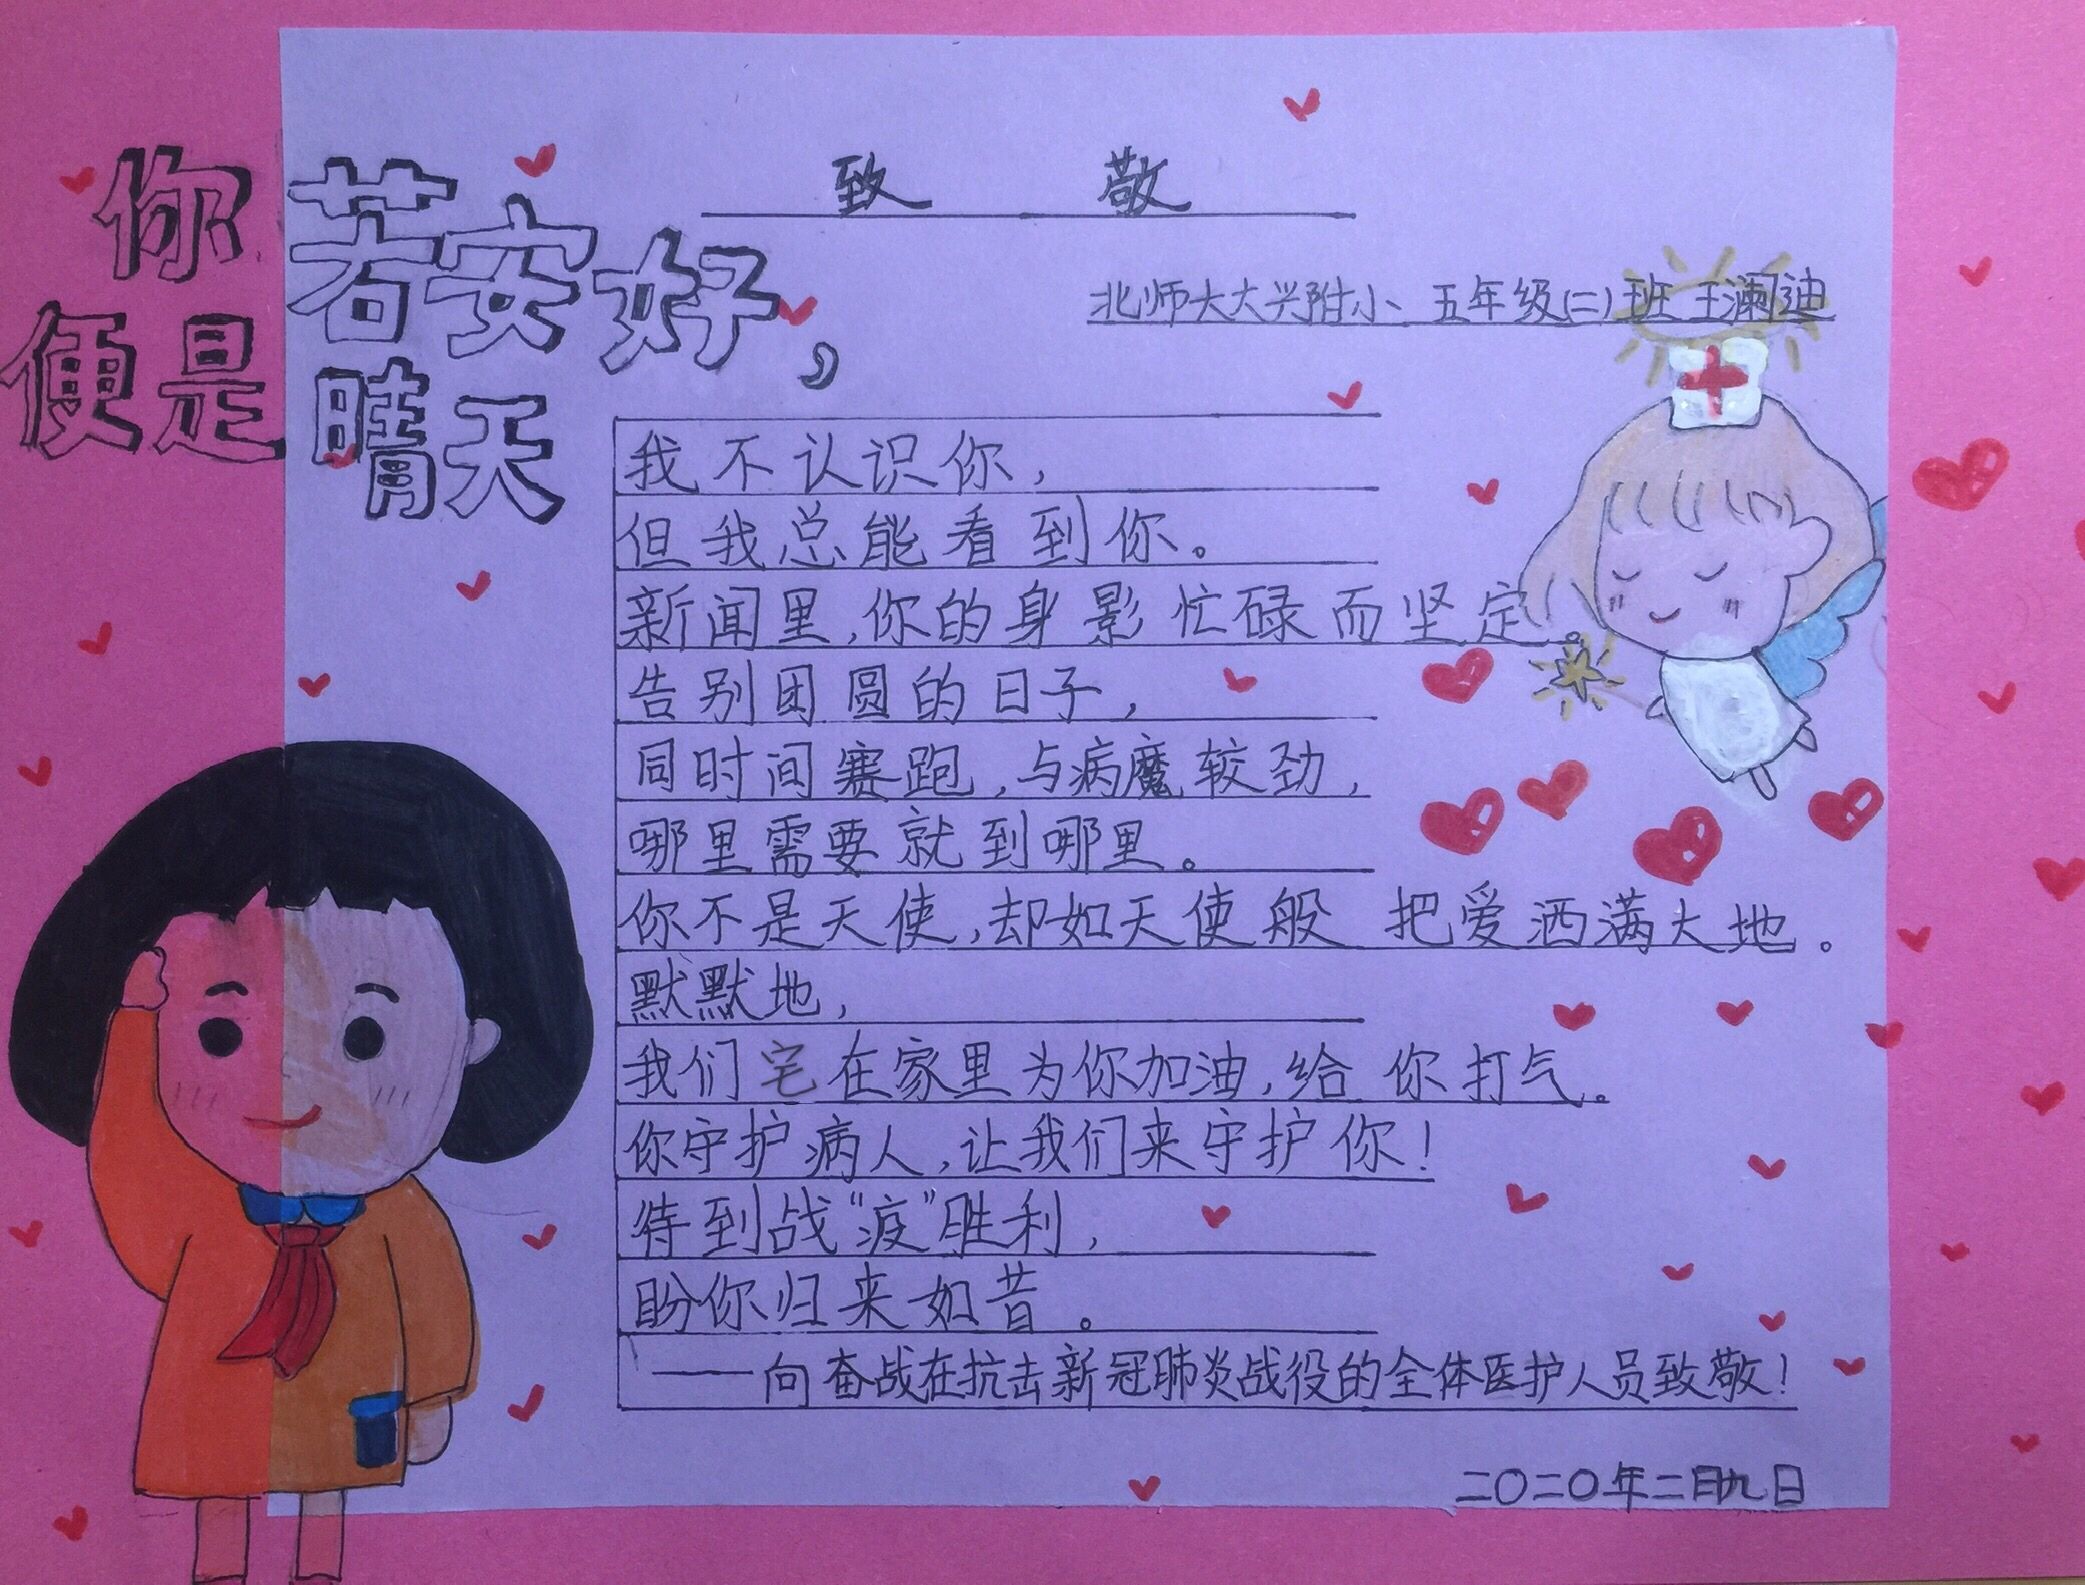 你若安好，
便是晴天
致敬
北师大大兴附小 五年级(二)班 王澜迪
我不认识你，
但我总能看到你。
新闻里，你的身影忙碌而坚定。
告别团圆的日子，
同时间赛跑，与病魔较劲，
哪里需要就到哪里。
你不是天使，却如天使般 把爱洒满大地。
默默地，
我们宅在家里为你加油，给你打气。
你守护病人，让我们来守护你！
待到战“疫”胜利，
盼你归来如昔。
——向奋战在抗击新冠肺炎战役的全体医护人员致敬！
二〇二〇年二月九日